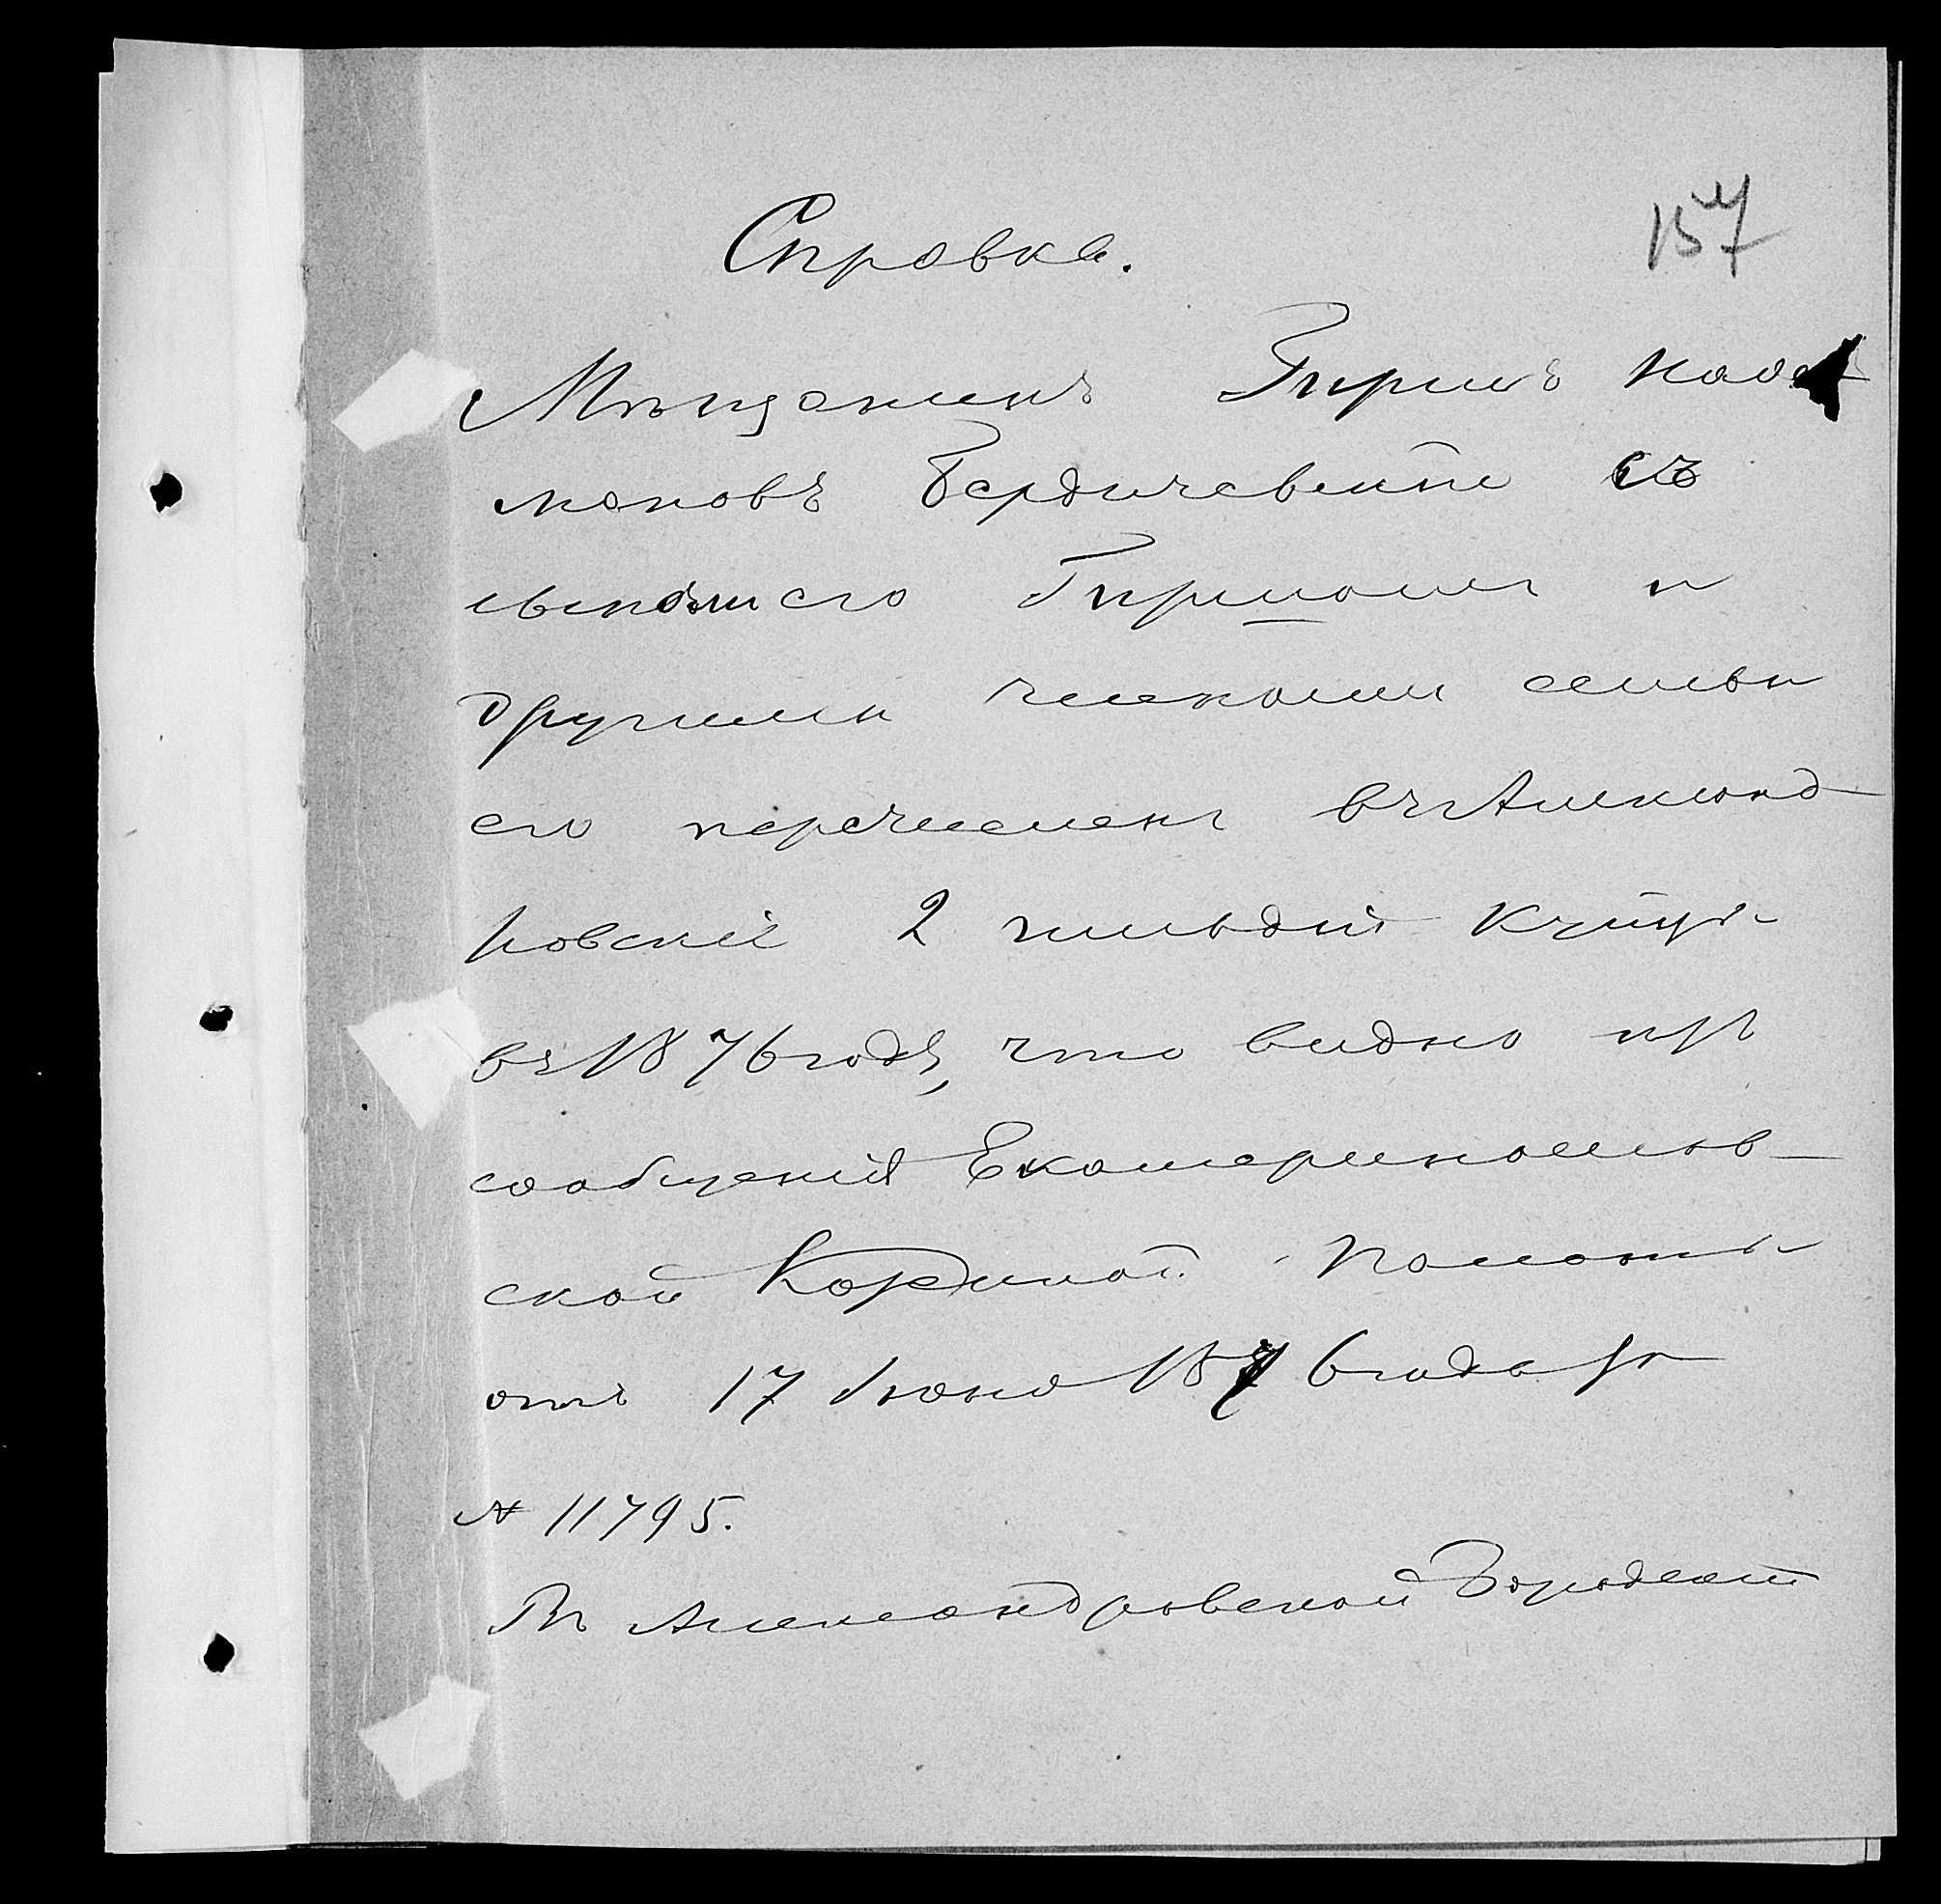 Справка.
157
Мѣщанинъ Гиршъ
мановъ Бердичевскiй съ
сыномъ его Гиршомъ и
другими членами семьи
его перечисленъ въ Александ-
ровскiе 2 гильдiи купцы
въ 1876 годѣ, что видно изъ
сообщенiя Екатеринослав-
ской Казенной Палаты
отъ 17 Iюня 1876 года за
№ 11795.
Въ Александровской Городской